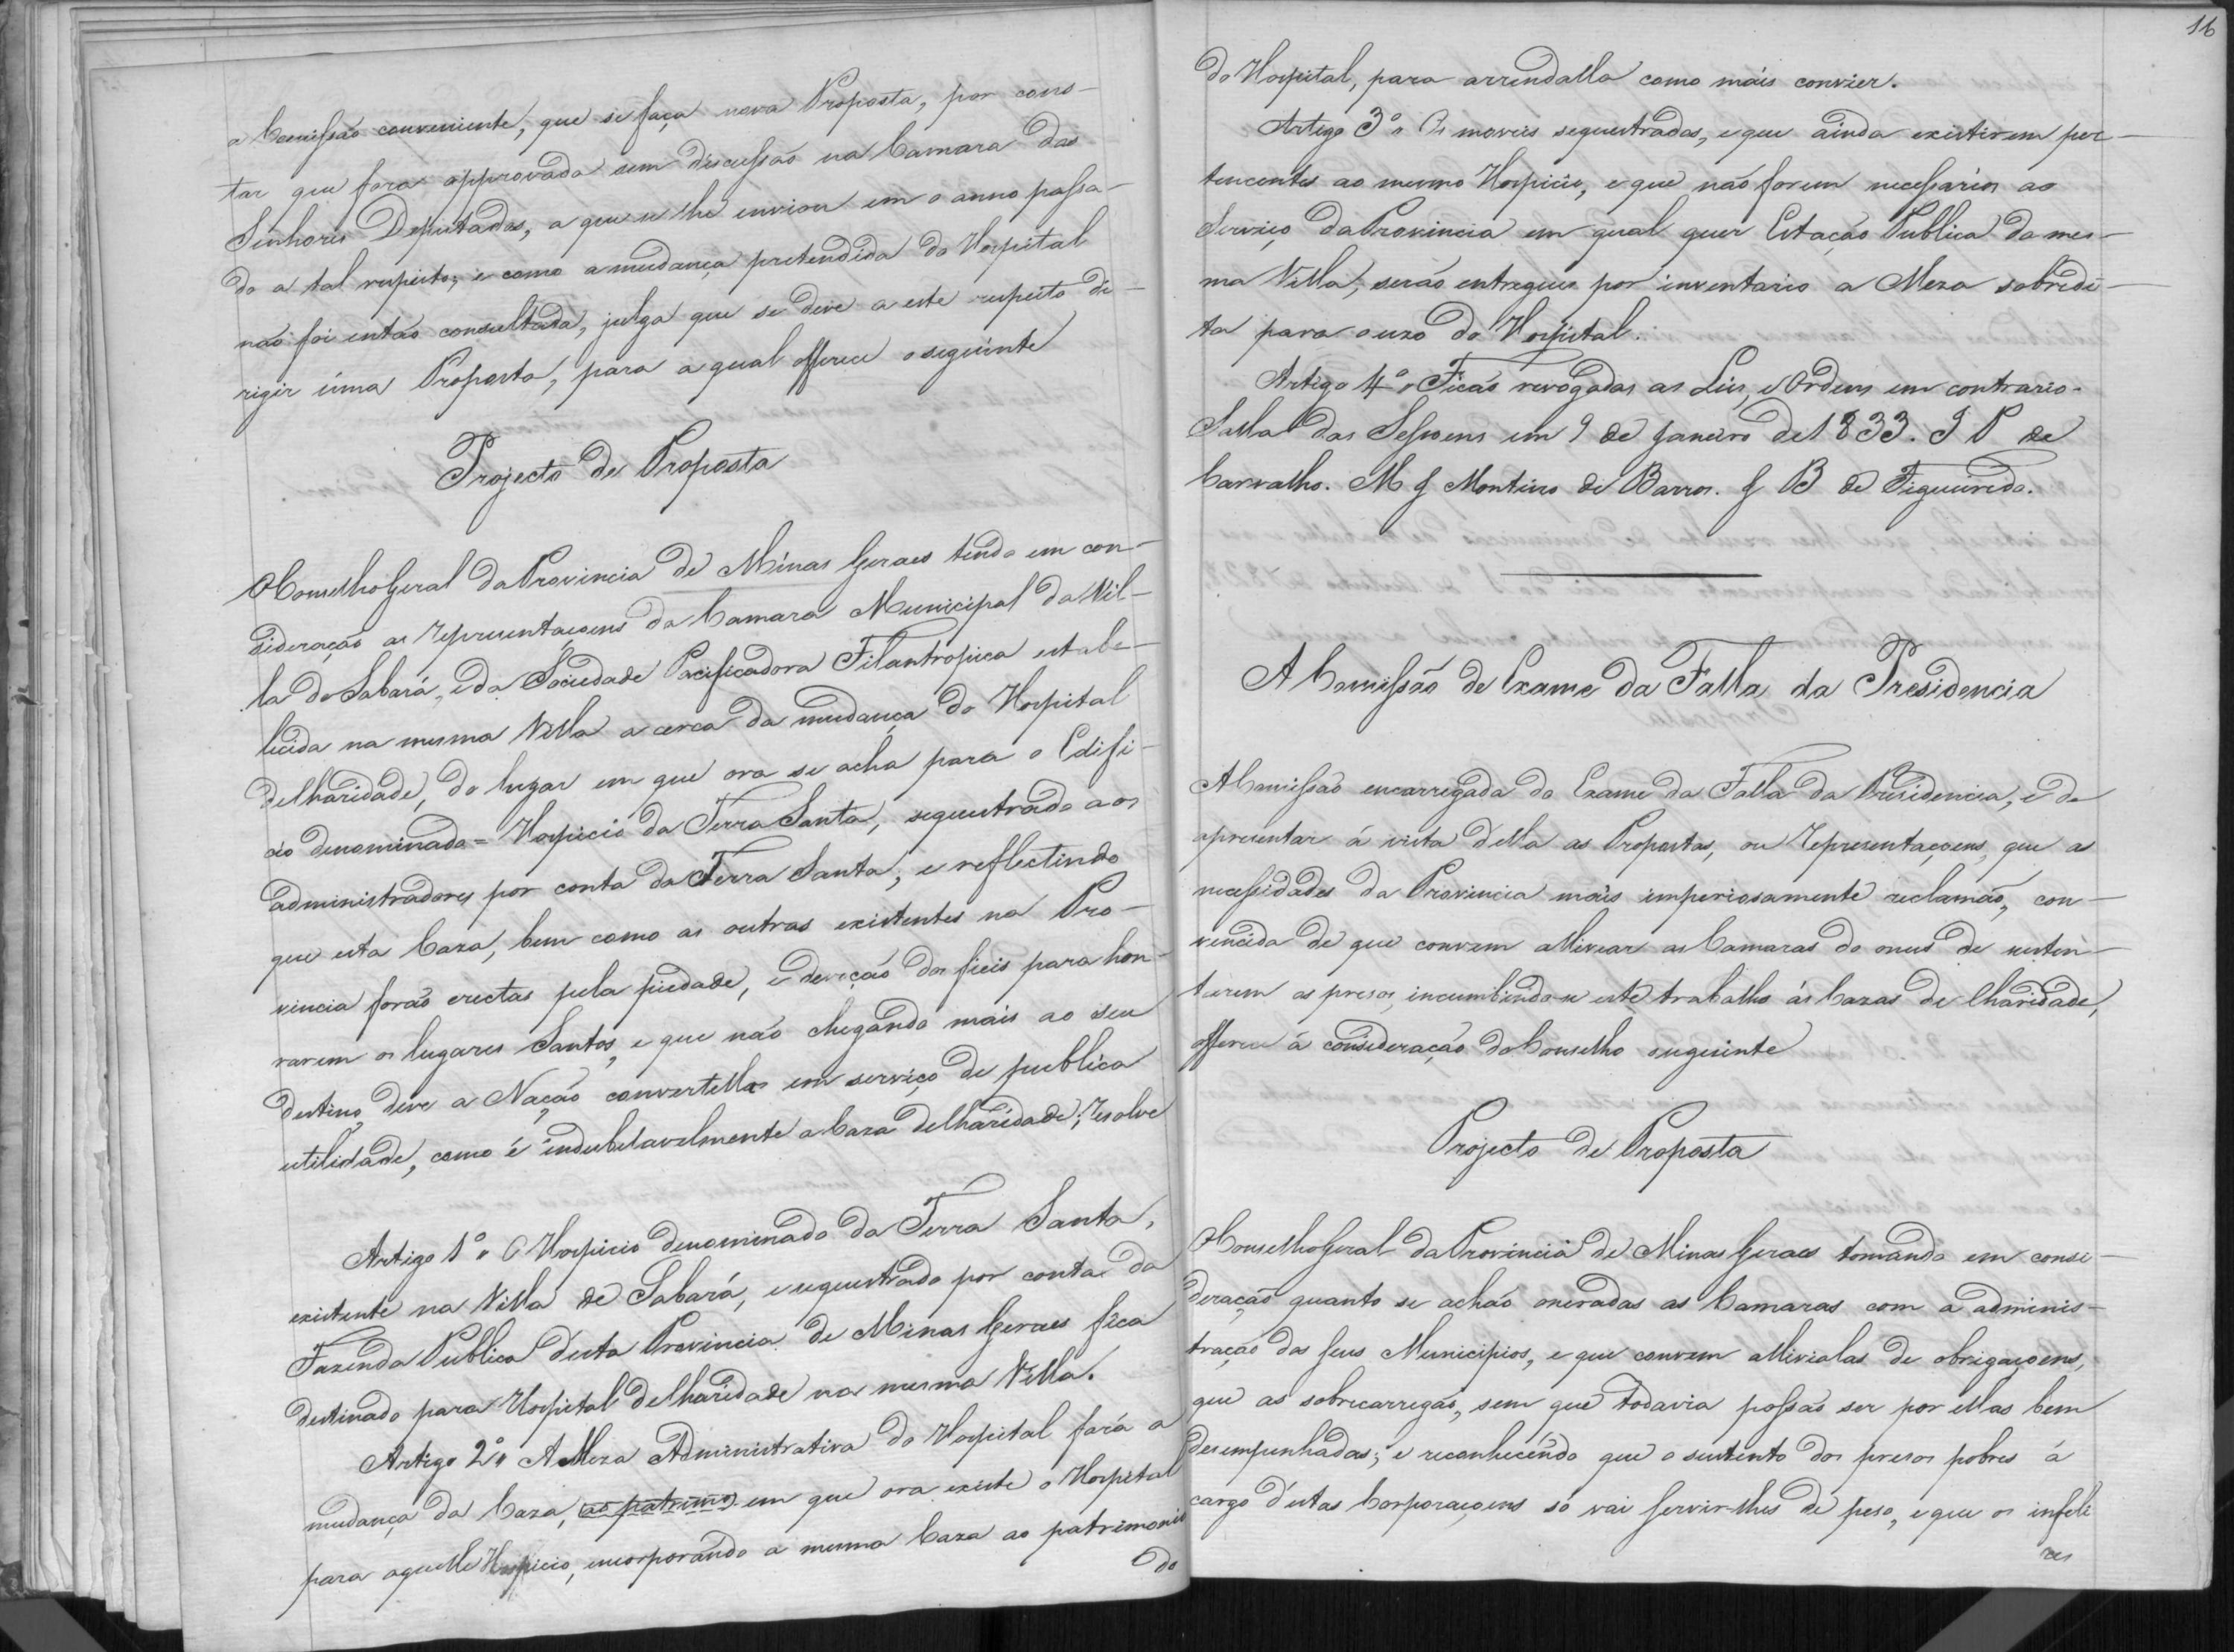 a Comissão conveniente, que se faça nova Proposta, por cons-
tar que fora approvada sem discussão na Camara dos
Senhores Deputados, a que se lhe enviou em o anno passa-
do a tal respeito; e como a mudança pretendida do Hospital
não foi então consultada, julga que se deve a este respeito di-
rigir úma Proposta, para a qual offerece o seguinte
Projecto de Proposta
O Conselho Geral da Provincia de Minas Geraes tendo em con-
sideração as representaçoens da Camara Municipal da Vil-
la do Sabará, e da Sociedade Pacificadora Filantropica estabe-
lecida na mesma Villa a cerca da mudança do Hospital
de Charidade, do lugar em que ora se acha para o Edifi-
cio denominado = Hospicio da Terra Santa, sequestrado aos
administradores por conta da Terra Santa; e reflectindo
que esta Caza, bem como as outras existentes na Pro-
vincia forão erectas pela piedade, e devoção dos fieis para hon-
rarem os lugares Santos, e que não chegando mais ao seu
destino, deve a Nação convertellas em serviço de publica
utilidade, como é indubitavelmente a Caza de Charidade; resolve
Artigo 1º " O Hospicio denominado da Terra Santa,
existente na Villa de Sabará, e sequestrado por conta da
Fazenda Publica desta Provincia de Minas Geraes fica
destinado para Hospital de Charidade na mesma Villa.
Artigo 2º " A Meza Administrativa do Hospital fará a
mudança da Caza, ao patrimo em que ora existe o Hospital
para aquelle Hospicio, encorporando a mesma Caza ao patrimonio
do
16
do Hospital, para arrendalla como mais convier.
Artigo 3º " Os moveis sequestrados, e que ainda existirem per-
tencentes ao mesmo Hospicio, e que não forem necessarios ao
Serviço da Provincia em qual quer Estação Publica da mes-
ma Villa, serão entregues por inventario a Meza sobredi-
ta para o uzo do Hospital.
Artigo 4º " Ficão revogadas as Leis, e Ordens em contrario.
Salla das Sessoens em 9 de Janeiro de 1833. J P de
Carvalho. M J Monteiro de Barros. J B de Figueiredo.
A Comissão de Exame da Falla da Presidencia
A Comissão encarregada do Exame da Falla da Presidencia, e de
apresentar á vista della as Propostas, ou representaçoens, que as
necessidades da Provincia mais imperiosamente reclamão, con-
vencida de que convem alliviar as Camaras do onus de susten-
tarem os presos, incumbindo-se este trabalho ás Cazas de Charidade,
offerece á consideração do Conselho o seguinte
Projecto de Proposta
O Conselho Geral da Provincia de Minas Geraes tomando em consi-
deração quanto se achão oneradas as Camaras com a adminis-
tração dos seus Municipios, e que convem allivialas de obrigaçoens,
que as sobrecarregão, sem que todavia possão ser por ellas bem
desempenhadas; e reconhecendo que o sustento dos presos pobres á
cargo d'estas Corporaçoens só vai servir-lhes de peso, e que os infeli
zes